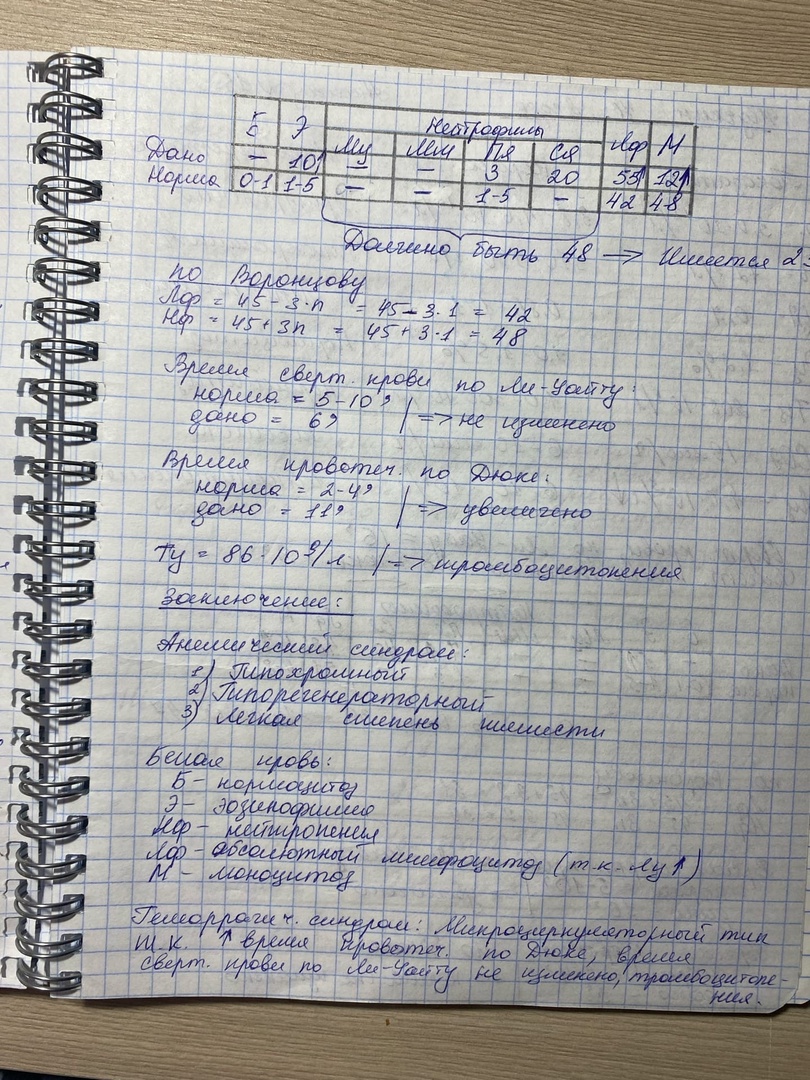 Б Э Нейтрофилы Лф М
Му Мм Пя Ся
Дано – 10↑ – – 3 20 55↑ 12↑
Норма 0-1 1-5 – – 1-5 – 42 4-8
Должно быть 48 → Имеется 2
по Воронцову
Лф = 45 – 3·n = 45 – 3·1 = 42
Нф = 45 + 3n = 45 + 3·1 = 48
Время сверт. крови по Ли-Уайту:
норма = 5-10'
дано = 6' | => не изменено
Время кровотеч. по Дюке:
норма = 2-4'
дано = 11' | => увеличено
Тц = 86·10⁹/л | => тромбоцитопения
Заключение:
Анемический синдром:
1) Гипохромный
2) Гипорегенераторный
3) Легкая степень тяжести
Белая кровь:
Б – нормацитоз
Э – эозинофилия
Нф – нейтропения
Лф – абсолютный лимфоцитоз (т.к. Лц↑)
М – моноцитоз
Геморрагич. синдром: Микроциркуляторный тип
т.к. ↑ время кровотеч. по Дюке, время
сверт. крови по Ли-Уайту не изменено, тромбоцитопе-
ния.